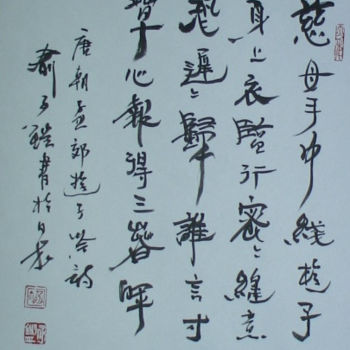 慈母手中线遊子
身上衣臨行密々縫意
恐遲々歸誰言寸
草心報得三春暉
唐朝孟郊遊子吟詩
俞子書於日本